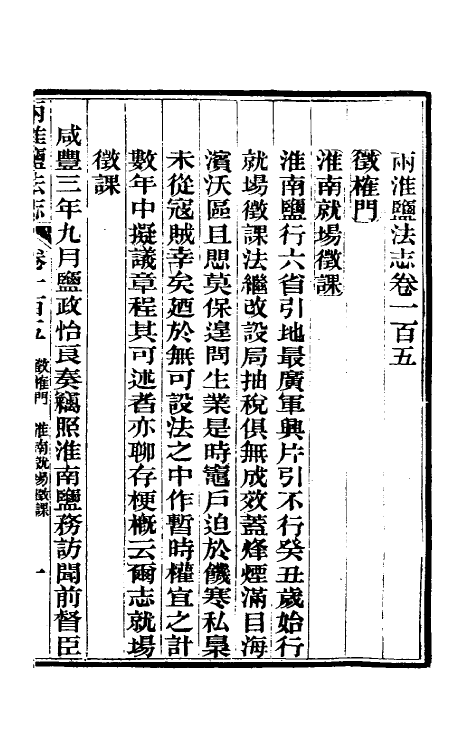 兩淮鹽法志卷一百五
徵榷門
淮南就場徵課
淮南鹽行六省引地最廣軍興片引不行癸丑歲始行
就場徵課法繼改設局抽稅俱無成效蓋烽煙滿目海
濱沃區且惴莫保遑問生業是時竈戶迫於饑寒私梟
未從寇賊幸矣廼於無可設法之中作暫時權宜之計
數年中擬議章程其可述者亦聊存梗槪云爾志就場
徵課
咸豐三年九月鹽政怡良奏竊照淮南鹽務訪聞前督臣
兩淮鹽法志 卷一百五 徵榷門 淮南就場徵課 一